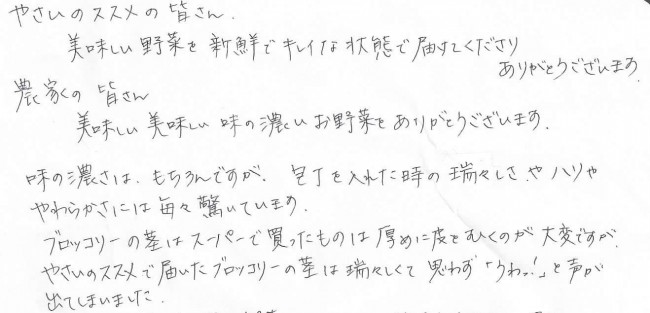 やさいのススメの皆さん.
美味しい野菜を新鮮でキレイな状態で届けてくださり
ありがとうございます.
農家の皆さん
美味しい美味しい味の濃いお野菜をありがとうございます.
味の濃さは、もちろんですが、包丁を入れた時の瑞々しさやハリや
やわらかさには毎々驚いています.
ブロッコリーの茎はスーパーで買ったものは厚めに皮をむくのが大変ですが、
やさいのススメで届いたブロッコリーの茎は瑞々しくて思わず「うわっ!」と声が
出てしまいました.